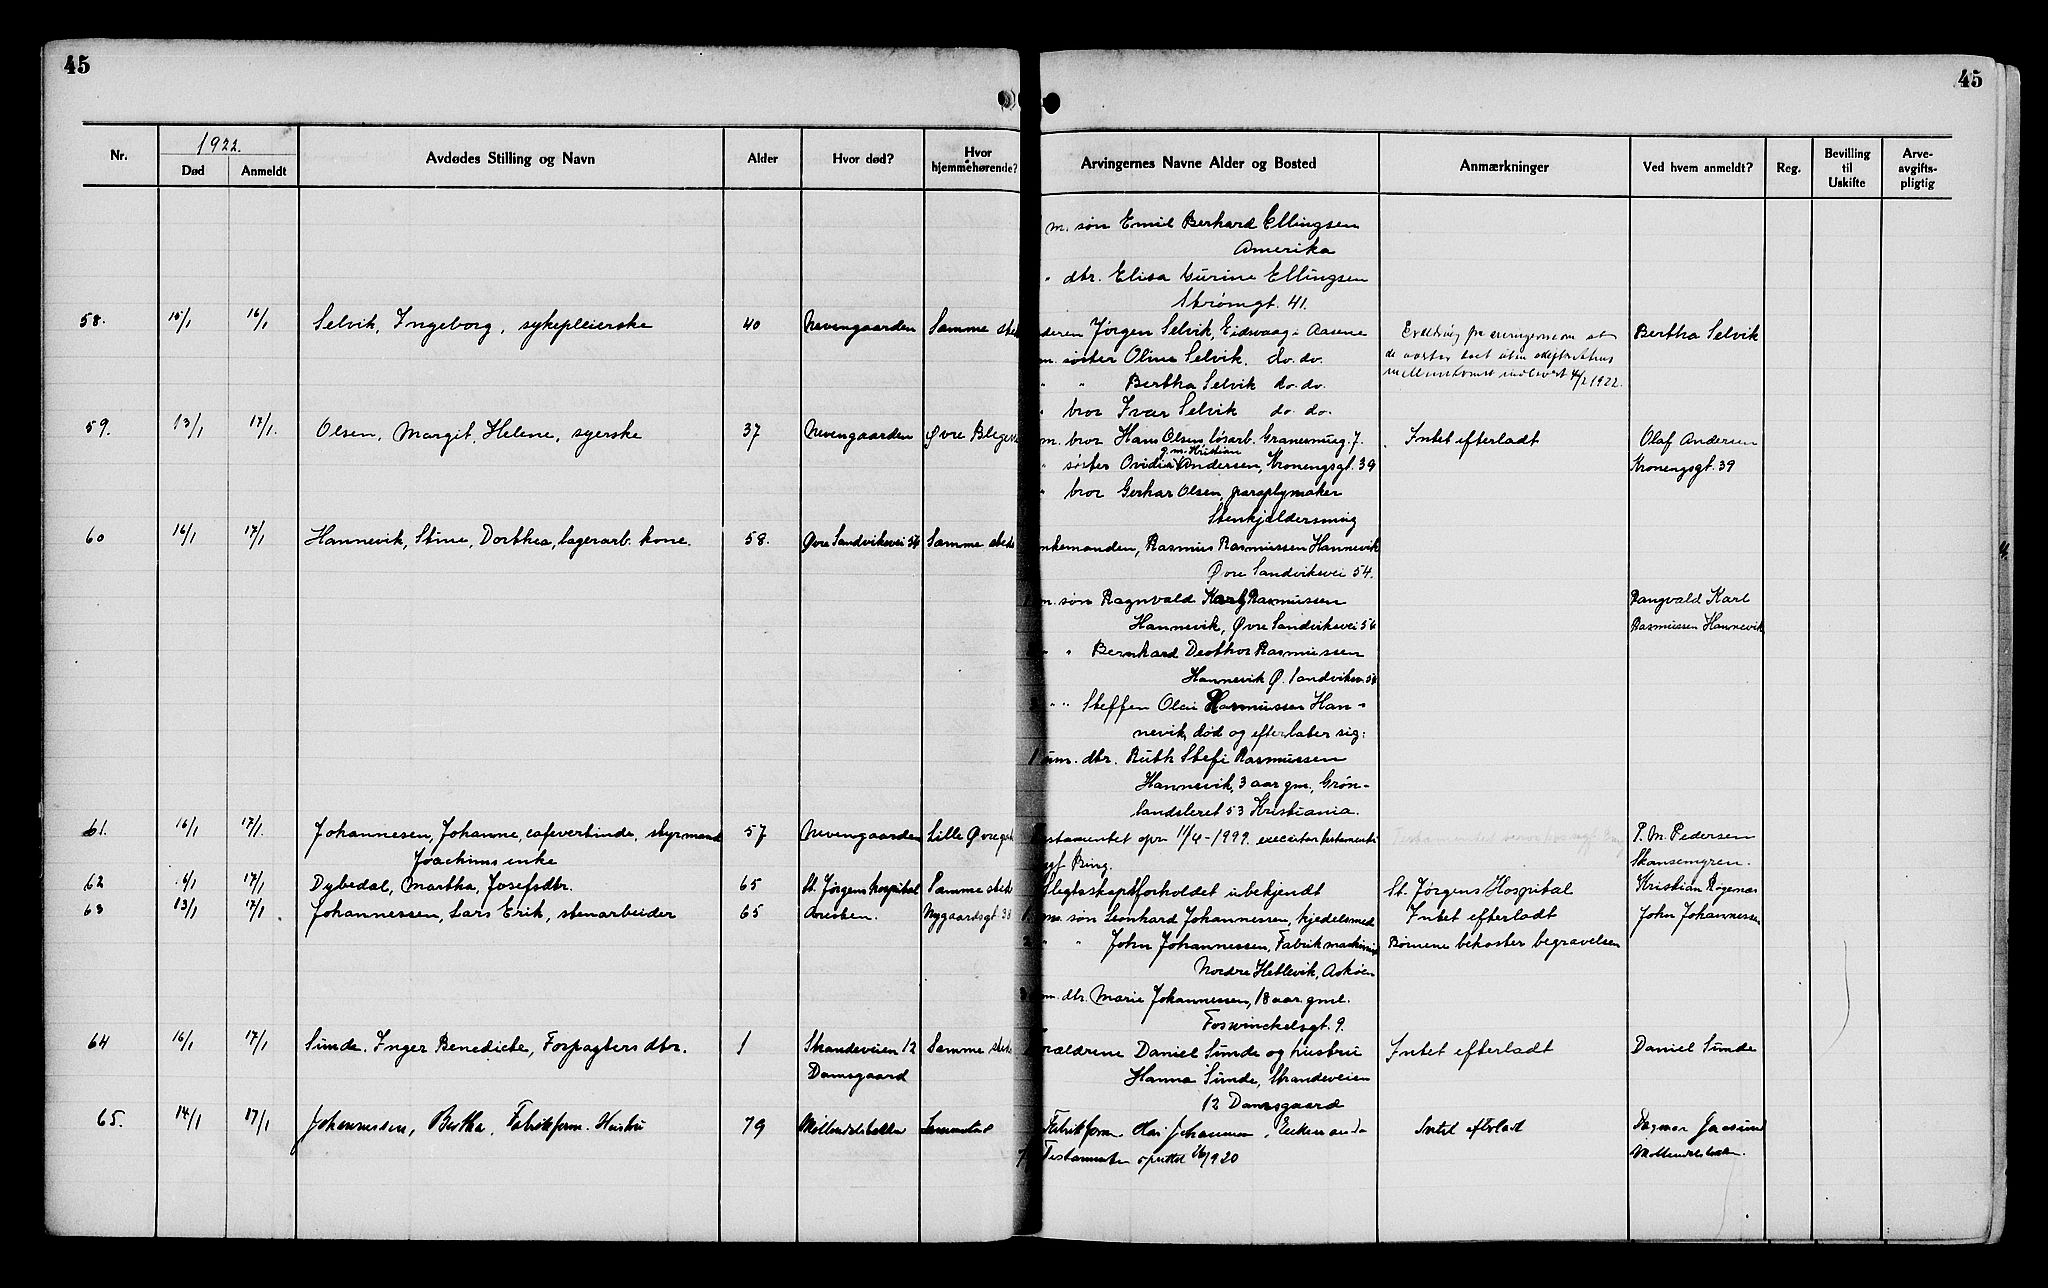 45
45
Nr.
1922.
Død
Anmeldt
Avdødes Stilling og Navn
Alder
Hvor død?
Hvor hjemmehørende?
Arvingernes Navne Alder og Bosted
Anmærkninger
Ved hvem anmeldt?
Reg.
Bevilling til Uskifte
Arve-avgifts-pligtig
m. søn Emil Berhard Ellingsen
Amerika
" dtr. Elisa Gurine Ellingsen
Strømgt. 41.
58. 15/1 16/1 Selvik, Ingeborg, sykepleierske 40 Nevengaarden Samme sted
Jørgen Selvik, Eidsvaag i Aasene
Bertha Selvik
m. søster Oline Selvik, do. do.
" " Bertha Selvik do. do.
1922.
" bror Ivar Selvik do. do.
59. 13/1 17/1. Olsen, Margit, Helene, syerske 37 Nevengaarden Øvre Blegev
m. bror Hans Olsen, løsarb. Granesmug. 7.
Intet efterladt
Olaf Andersen
g. m. Kristian
" søster Ovidia Andersen, Kronengsgt. 39
Kronengsgt. 39
" bror Gerhar Olsen, paraplymaker
Stenkjeldersmug
60 16/1 17/1 Hannevik, Stine, Dorthea, lagerarb. kone. 58. Øvre Sandviksvei 54 Samme sted
enkemanden, Rasmus Rasmussen Hannevik
Øvre Sandviksvei 54.
m. søn Ragnvald Karl Rasmussen
Hannevik, Øvre Sandviksvei 54
Rangvald Karl
Rasmussen Hannevik
" " Bernhard Deothor Rasmussen
Hannevik Ø. Sandviksv. 54
" " Steffen Olai Rasmussen Han-
nevik, død og efterlater sig:
1 um. dtr. Ruth Stefi Rasmussen
Hannevik, 3 aar gm., Grøn-
landsleret 53 Kristiania.
61. 16/1 17/1. Johannesen, Johanne, cafevertinde, styrmand 57 Nevengaarden Lille Øvregt
Joachims enke
Testamentet opr 11/4-1999. executor testamenti
P. M. Pedersen
Skansemyren.
Bing.
62 6/1 17/1 Dybedal, Martha, Josefsdtr. 65 St. Jørgens hospital Samme sted
Slegtsskapsforholdet ubekjendt
St. Jørgens Hospital
Kristian Rogenæs
63 13/1 17/1. Johannessen, Lars Erik, stenarbeider 65 Aresten. Nygaardsgt 38
1 m. søn Leonhard Johannessen, kjedelsmed
Intet efterladt
John Johannessen
2 " " John Johannessen, Fabrikmaskinist
Børnene bekoster begravelsen
Nordre Hetlevik, Askøen
3 um. dtr. Marie Johannessen, 18 aar gml.
Foswinckelsgt. 9.
64 16/1 17/1 Sunde, Inger Benedicte, Forpagters dtr. 1 Strandeveien 12 Samme sted
Damsgaard
Forældrene Daniel Sunde og hustru
Intet efterladt
Daniel Sunde
Hanna Sunde, Strandeveien
12 Damsgaard
65. 14/1 17/1 Johannessen, Bertha, Fabrikform. Hustru 79 Møllendalsbakken Sammested
Fabrikform Johannessen, Enkemand
Intet efterladt
Dagmar
Møllendalsbakken.
Testamente oprettet 1920